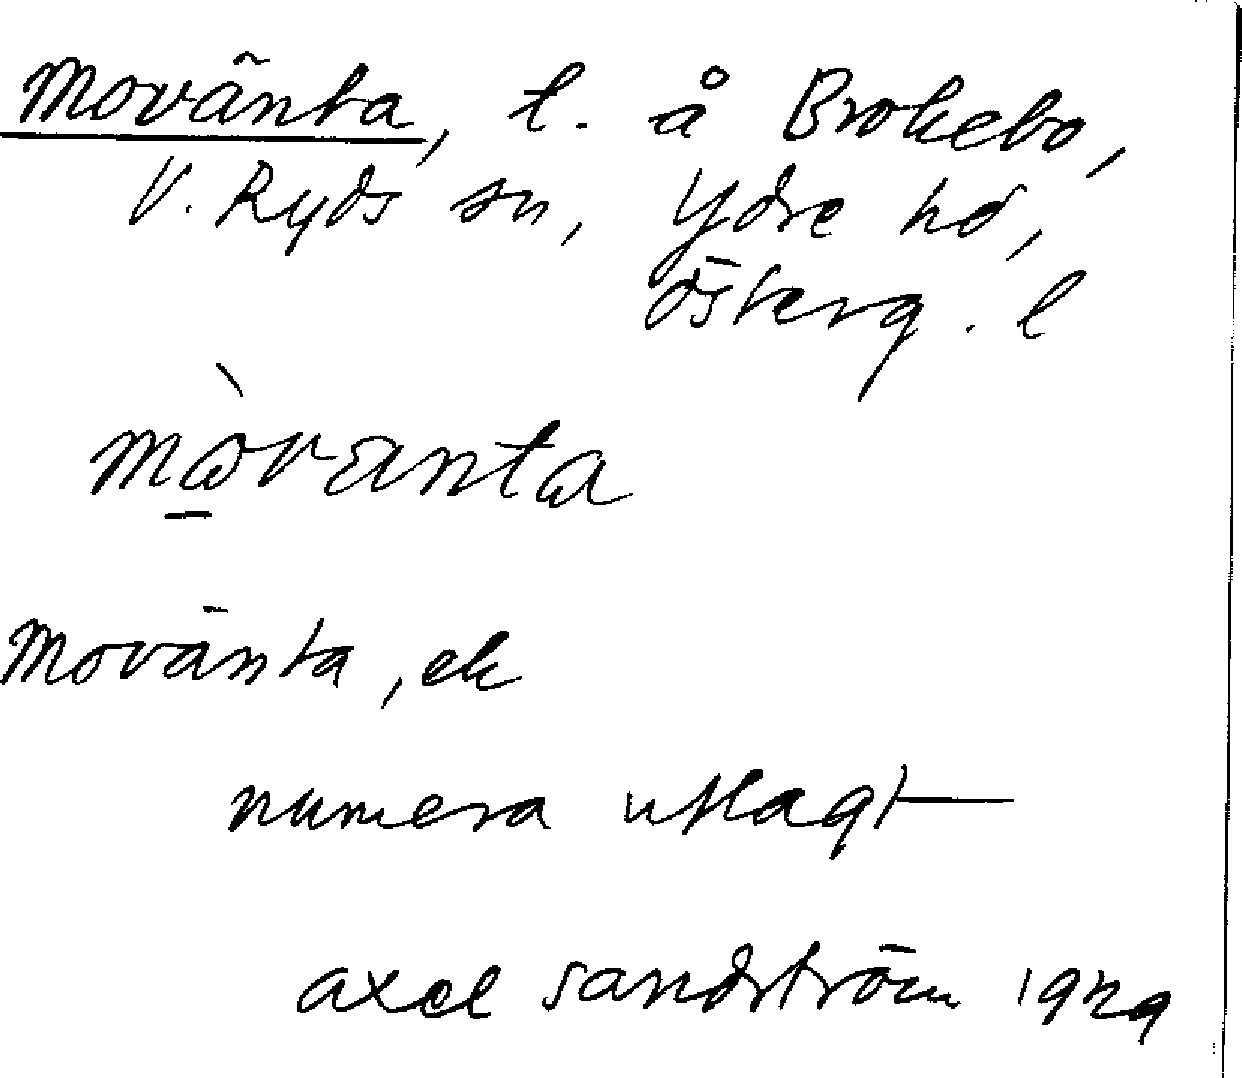 Movänta, t. å Brokebo,
V. Ryds sn, Ydre hd,
Österg. l
mòvanta
Movänta, ek
numera utlagt
Axel Sandström 1929